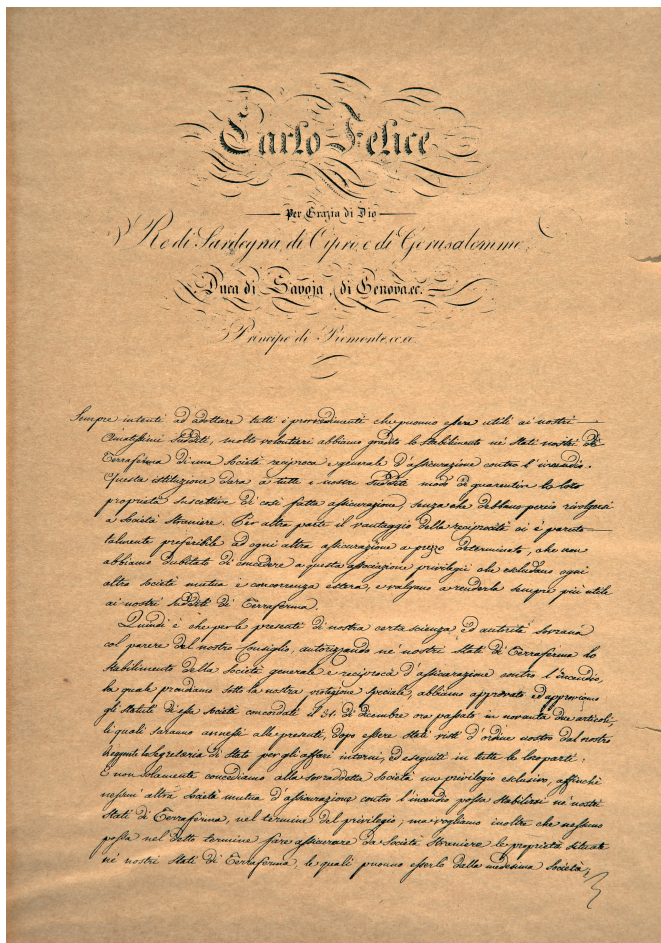 Carlo Felice
Per Grazia di Dio
Re di Sardegna, di Cipro, e di Gerusalemme,
Duca di Savoja, di Genova, ec.
Principe di Piemonte, ec. ec.
Sempre intenti ad adottare tutti i provvedimenti che puonno essere utili ai nostri
Amatissimi Sudditi, molto volontieri abbiamo gradito lo stabilimento ne' Stati nostri di
Terraferma di una Società reciproca e generale d'assicurazione contro l'incendio.
Questa istituzione darà a tutti i nostri Sudditi modo di guarentire le loro
proprietà suscettive di così fatta assicurazione, senza che debbano perciò rivolgersi
a Società Straniere. Per altra parte il vantaggio della reciprocità ci è paruto
talmente preferibile ad ogni altra assicurazione a prezzo determinato, che non
abbiamo dubitato di concedere a questa associazione privilegii che escludano ogni
altra Società mutua e concorrenza estera, e valgano a renderla sempre più utile
ai nostri Sudditi di Terraferma.
Quindi è che per le presenti di nostra certa scienza, ed autorità Sovrana
col parere del nostro Consiglio, autorizzando ne' nostri Stati di Terraferma lo
stabilimento della Società generale e reciproca d'assicurazione contro l'incendio,
la quale prendiamo sotto la nostra protezione speciale, abbiamo approvato ed approviamo
gli Statuti di essa Società concordati il 31. di dicembre ora passato in novanta due articoli,
li quali saranno annessi alle presenti, dopo essere stati visti d'ordine nostro dal nostro
Reggente la Segreteria di Stato per gli affari interni, ed eseguiti in tutte le loro parti:
E non solamente concediamo alla sovraddetta Società un privilegio esclusivo, affinchè
nessun' altra Società mutua d'assicurazione contro l'incendio possa stabilirsi ne' nostri
Stati di Terraferma, nel termine del privilegio; ma vogliamo inoltre che nessuno
possa nel detto termine fare assicurare da Società Straniere le proprietà situate
ne' nostri Stati di Terraferma, le quali puonno esserlo dalla medesima Società,